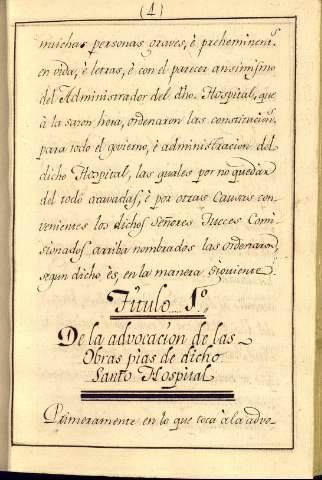 (1)
muichas personas graves, è preheminentˢ
en vida, è letras, è con el parecer ansimismo
del Administrador del dho. Hospital, que
à la sazon hera, ordenaron las constitucionˢ.
para todo el govierno, è administracion del
dicho Hospital, las quales por no quedar
del todo acavadas, è por otras Causas con-
venientes los dichos Señores Jueces Comi-
sionados arriba nombrados las ordenaron,
segun dicho ès, en la manera siguiente
Titulo 1.º
De la advocacion de las
Obras pias de dicho
Santo Hospital
Primeramente en lo que toca à la advo-